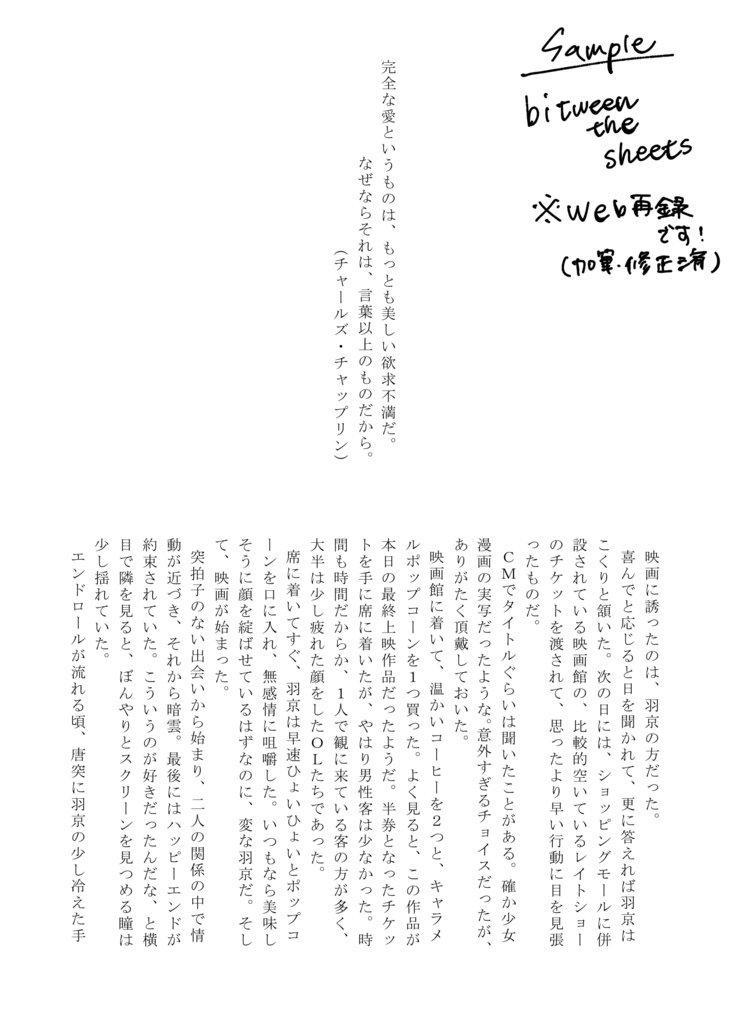 Sample
bitween
the
sheets
※Web再録
です!
(加筆・修正済)
完全な愛というものは、もっとも美しい欲求不満だ。
なぜならそれは、言葉以上のものだから。
(チャールズ・チャップリン)
映画に誘ったのは、羽京の方だった。
喜んでと応じると日を聞かれて、更に答えれば羽京は
こくりと頷いた。次の日には、ショッピングモールに併
設されている映画館の、比較的空いているレイトショー
のチケットを渡されて、思ったより早い行動に目を見張
ったものだ。
CMでタイトルぐらいは聞いたことがある。確か少女
漫画の実写だったような。意外すぎるチョイスだったが、
ありがたく頂戴しておいた。
映画館に着いて、温かいコーヒーを2つと、キャラメ
ルポップコーンを1つ買った。よく見ると、この作品が
本日の最終上映作品だったようだ。半券となったチケッ
トを手に席に着いたが、やはり男性客は少なかった。時
間も時間だからか、1人で観に来ている客の方が多く、
大半は少し疲れた顔をしたOLたちであった。
席に着いてすぐ、羽京は早速ひょいひょいとポップコ
ーンを口に入れ、無感情に咀嚼した。いつもなら美味し
そうに顔を綻ばせているはずなのに、変な羽京だ。そし
て、映画が始まった。
突拍子のない出会いから始まり、二人の関係の中で情
動が近づき、それから暗雲。最後にはハッピーエンドが
約束されていた。こういうのが好きだったんだな、と横
目で隣を見ると、ぼんやりとスクリーンを見つめる瞳は
少し揺れていた。
エンドロールが流れる頃、唐突に羽京の少し冷えた手